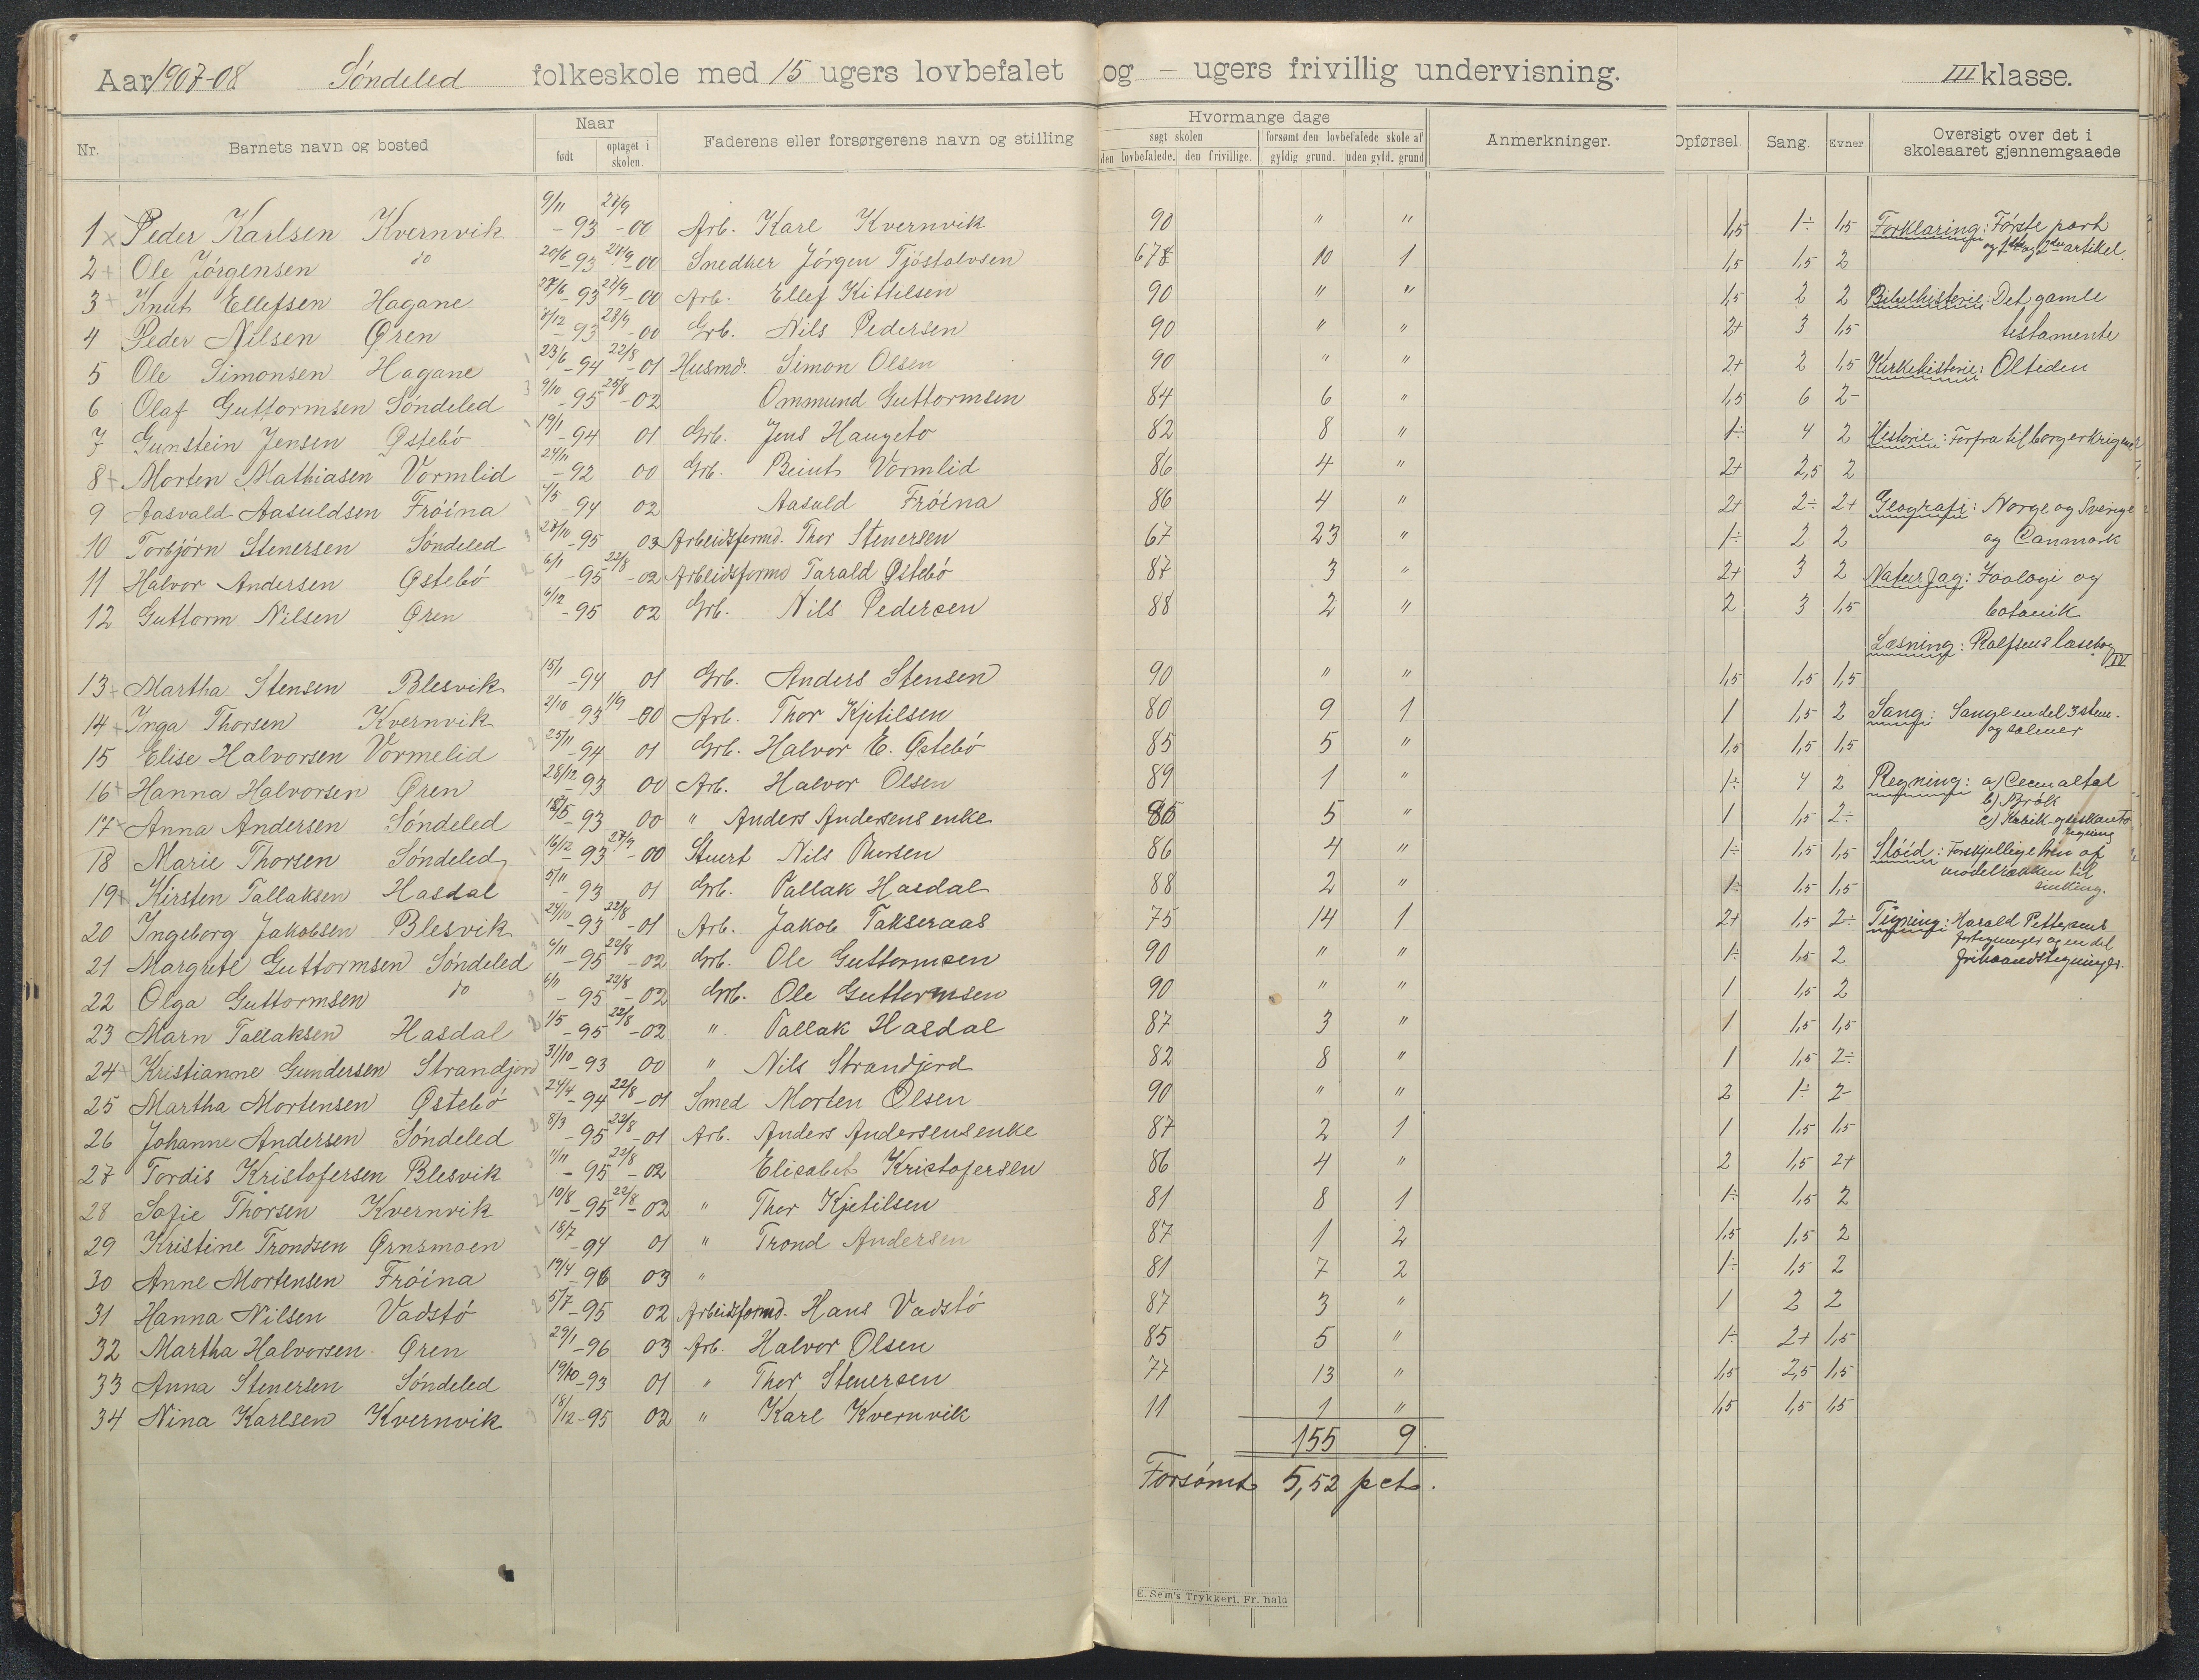 Aar 1907-08 Søndeled folkeskole med 15 ugers lovbefalet og – ugers frivillig undervisning. III klasse.
Nr. Barnets navn og bosted Naar født optaget i skolen. Faderens eller forsørgerens navn og stilling Hvormange dage søgt skolen den lovbefalede. den frivillige. forsømt den lovbefalede skole af gyldig grund. uden gyld. grund Anmerkninger. Opførsel. Sang. Evner Oversigt over det i skoleaaret gjennemgaaede
1 x Peder Karlsen Kvernvik 9/11 -93 27/9 -00 Arb. Karl Kvernvik 90 " " 1,5 1÷ 1,5 Forklaring: Første part
og 1ste og 2den artikel.
2 + Ole Jørgensen do 20/6 -93 27/9 -00 Snedker Jørgen Tjøstolvsen 678 10 1 1,5 1,5 2
3 + Knut Ellefsen Hagane 27/6 -93 27/9 -00 Arb. Ellef Kittilsen 90 " " 1,5 2 2 Bibelhistorie: Det gamle
4 Peder Nilsen Øren 7/12 -93 27/9 -00 Grb. Nils Pedersen 90 " " 2+ 3 1,5 testamente
5 Ole Simonsen Hagane 23/6 -94 22/8 -01 Husmd. Simon Olsen 90 " " 2+ 2 1,5 Kirkehistorie: Oltiden
6 Olaf Guttormsen Søndeled 9/10 -95 25/8 -02 Ommund Guttormsen 84 6 " 1,5 6 2-
7 Gunstein Jensen Østebø 19/1 -94 01 Grb. Jens Haugeto 82 8 " 1÷ 4 2 Historie: Forfra til borgerkrigene
8 + Morten Mathiasen Vormlid 24/11 -92 00 Grb. Beint Vormlid 86 4 " 2+ 2,5 2
9 Aasvald Aasuldsen Frøina 4/5 -94 02 Aasuld Frøina 86 4 " 2+ 2÷ 2+ Geografi: Norge og Sverige
10 Torbjørn Stenersen Søndeled 27/10 -95 03 Arbeidsformd. Thor Stenersen 67 23 " 1÷ 2 2 og Danmark
11 Halvor Andersen Østebø 6/1 -95 22/8 -02 Arbeidsformd Tarald Østebø 87 3 " 2+ 3 2 Naturfag: Zoologi og
12 Guttorm Nilsen Øren 6/12 -95 02 Grb. Nils Pedersen 88 2 " 2 3 1,5 botanik
Læsning: Rolfsens læsebog IV
13 + Martha Stensen Blesvik 15/1 -94 01 Grb. Anders Stensen 90 " " 1,5 1,5 1,5
14 + Inga Thorsen Kvernvik 2/10 -93 1/9 -00 Arb. Thor Kjetilsen 80 9 1 1 1,5 2 Sang: Sange en del 3stem.
og salmer
15 Elise Halvorsen Vormelid 25/11 -94 01 Grb. Halvor E. Østebø 85 5 " 1,5 1,5 1,5
16 + Hanna Halvorsen Øren 28/12 -93 00 Arb. Halvor Olsen 89 1 " 1÷ 4 2 Regning: a) Decimaltal
b) Brøk
17 + Anna Andersen Søndeled 18/5 -93 00 " Anders Andersens enke 85 5 " 1 1,5 2÷ c)
regning
18 Marie Thorsen Søndeled 16/12 -93 27/9 -00 Stuert Nils Thorsen 86 4 " 1÷ 1,5 1,5 Sløid: Forskjellige trin af
modelrækken til
19 + Kirsten Tallaksen Hasdal 5/11 -93 01 Grb. Tallak Hasdal 88 2 " 1÷ 1,5 1,5 sinking.
20 Ingeborg Jakobsen Blesvik 24/10 -93 22/8 -01 Arb. Jakob Takseraas 75 14 1 2+ 1,5 2÷ Tegning: Harald Pettersens
fortegninger og en del
21 Margrete Guttormsen Søndeled 6/11 -95 22/8 -02 Grb. Ole Guttormsen 90 " " 1÷ 1,5 2 frihaandstegninger.
22 Olga Guttormsen do 6/11 -95 22/8 -02 Grb. Ole Guttormsen 90 " " 1 1,5 2
23 Marn Tallaksen Hasdal 1/5 -95 22/8 -02 " Tallak Hasdal 87 3 " 1 1,5 1,5
24 + Kristianne Gundersen Strandjord 31/10 -93 00 " Nils Strandjord 82 8 " 1 1,5 2÷
25 Martha Mortensen Østebø 24/4 -94 22/8 -01 Smed Morten Olsen 90 " " 2 1÷ 2-
26 Johanne Andersen Søndeled 8/3 -95 22/8 -01 Arb. Anders Andersens enke 87 2 1 1 1,5 1,5
27 Tordis Kristofersen Blesvik 11/11 -95 22/8 -02 Elisabet Kristofersen 86 4 " 2 1,5 2+
28 Sofie Thorsen Kvernvik 10/8 -95 22/8 -02 " Thor Kjetilsen 81 8 1 1÷ 1,5 2
29 Kristine Trondsen Ørnsmoen 18/7 -94 01 " Trond Andersen 87 1 2 1,5 1,5 2
30 Anne Mortensen Frøina 19/4 -96 03 " 81 7 2 1÷ 1,5 2
31 Hanna Nilsen Vadstø 5/7 -95 02 Arbeidsformd. Hans Vadstø 87 3 " 1 2 2
32 Martha Halvorsen Øren 29/1 -96 03 Arb. Halvor Olsen 85 5 " 1÷ 2+ 1,5
33 Anna Stenersen Søndeled 19/10 -93 01 " Thor Stenersen 77 13 " 1,5 2,5 1,5
34 Nina Karlsen Kvernvik 18/12 -95 02 " Karl Kvernvik 11 1 " 1,5 1,5 1,5
155 9.
Forsømt 5,52 pct.
E. Sem's Trykkeri, Fr. hald